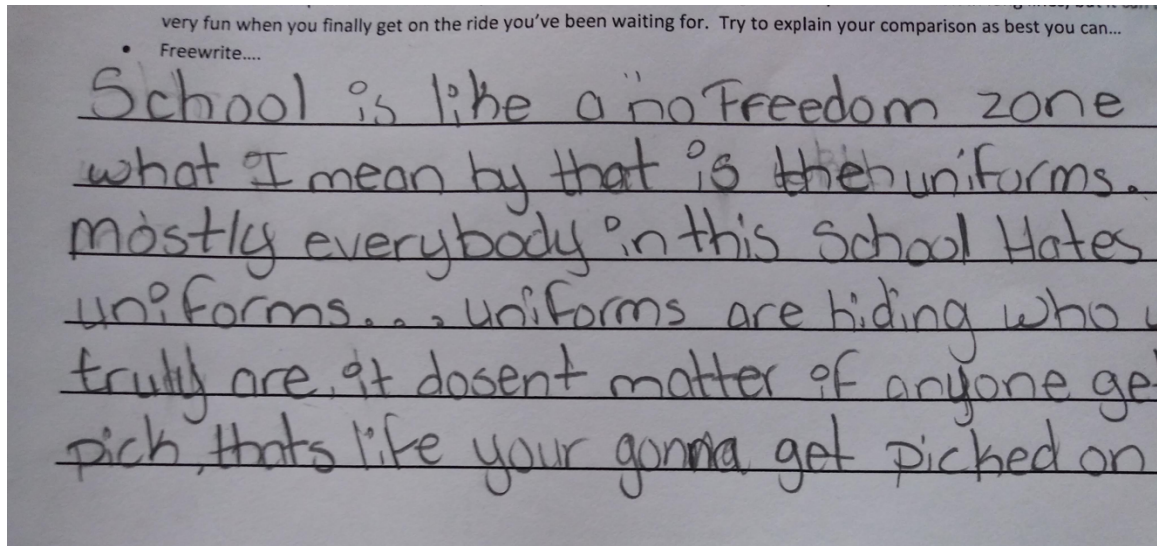 very fun when you finally get on the ride you've been waiting for. Try to explain your comparison as best you can...
• Freewrite....
School is like a "no Freedom zone
what I mean by that is the uniforms.
mostly everybody in this School Hates
uniforms.... uniforms are hiding who
truly are, it dosent matter if anyone ge
pick, thats life your gonna get picked on